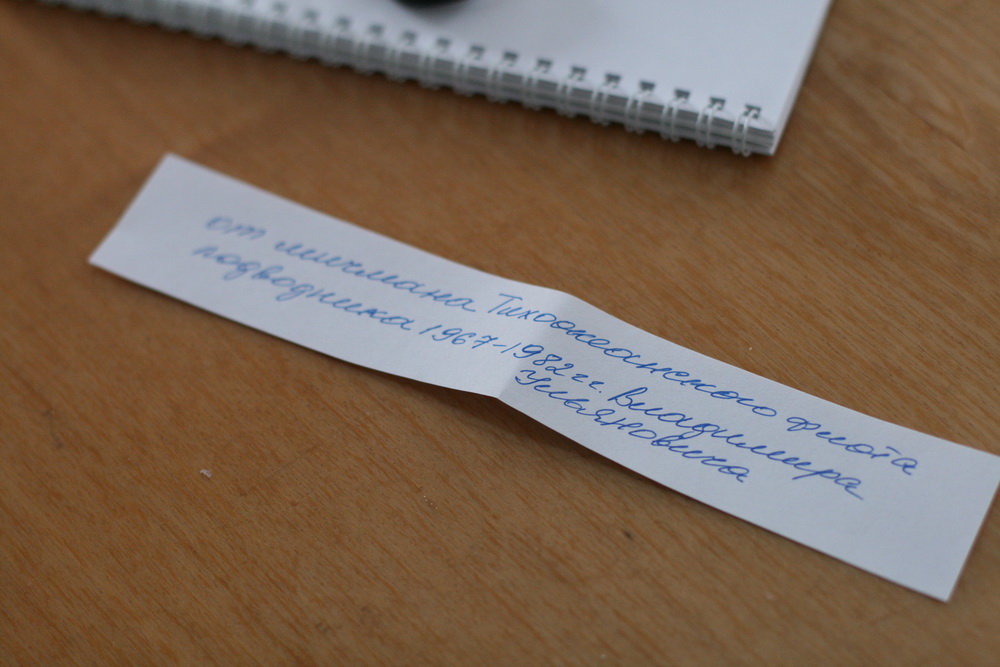 от мичмана Тихоокеанского флота
подводника 1967-1982 гг. Владимира
Ульяновича